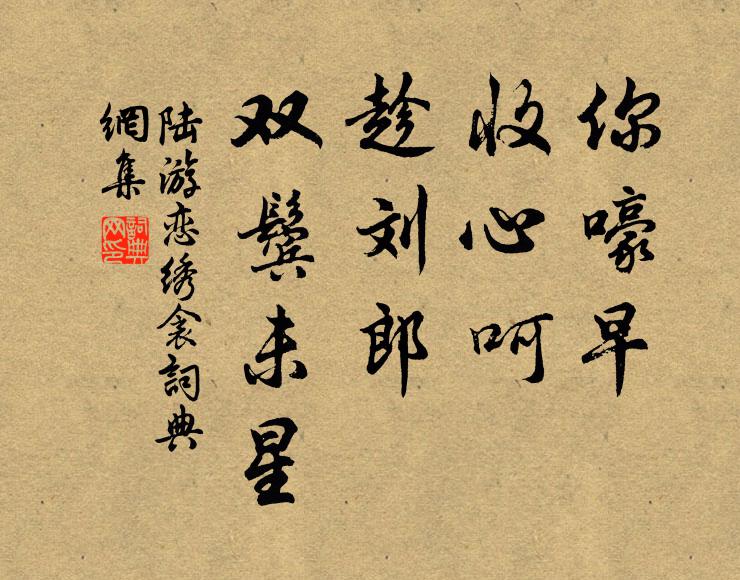 你嚎早
收心呵
趁刘郎
双鬓未星
陆游恋绣衾詞典
網集
詞典
网印